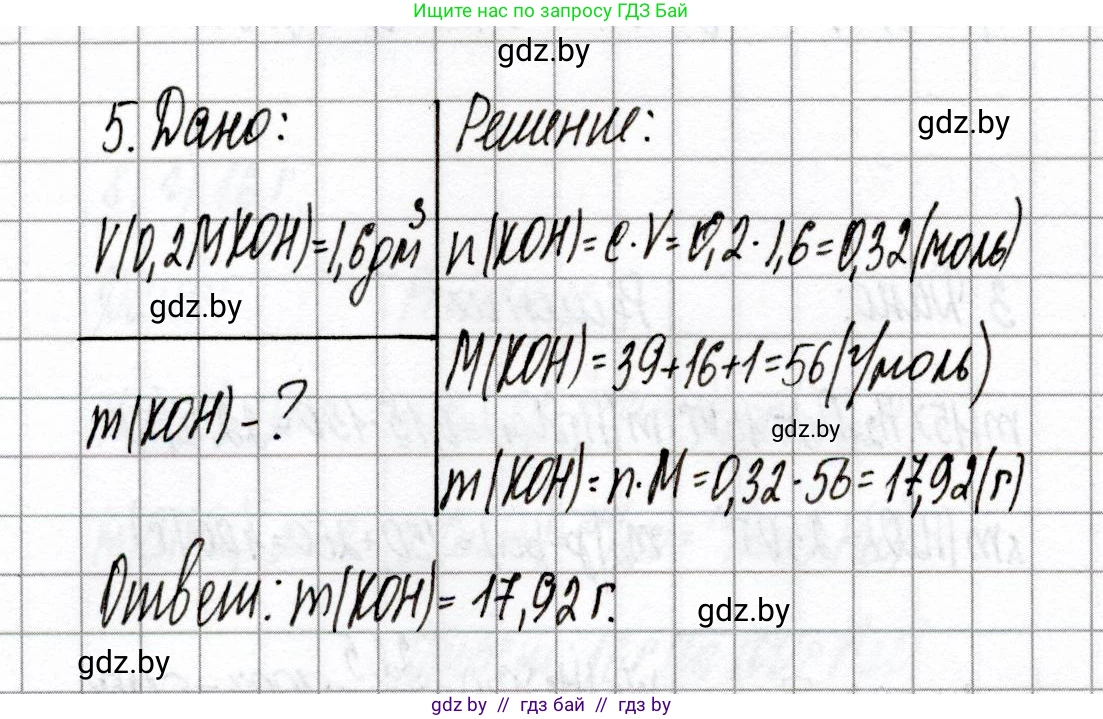 Ищите нас по запросу ГДЗ Бай
gdz.by
5. Дано:
Решение:
gdz.by
V(0,2М KOH)=1,6дм³
n(KOH)=c·V=0,2·1,6=0,32(моль)
gdz.by
M(KOH)=39+16+1=56(г/моль)
m(KOH)-?
gdz.by
m(KOH)=n·M=0,32·56=17,92(г)
Ответ: m(KOH)=17,92 г.
gdz.by
gdz.by
gdz by // гдз бай // гдз by